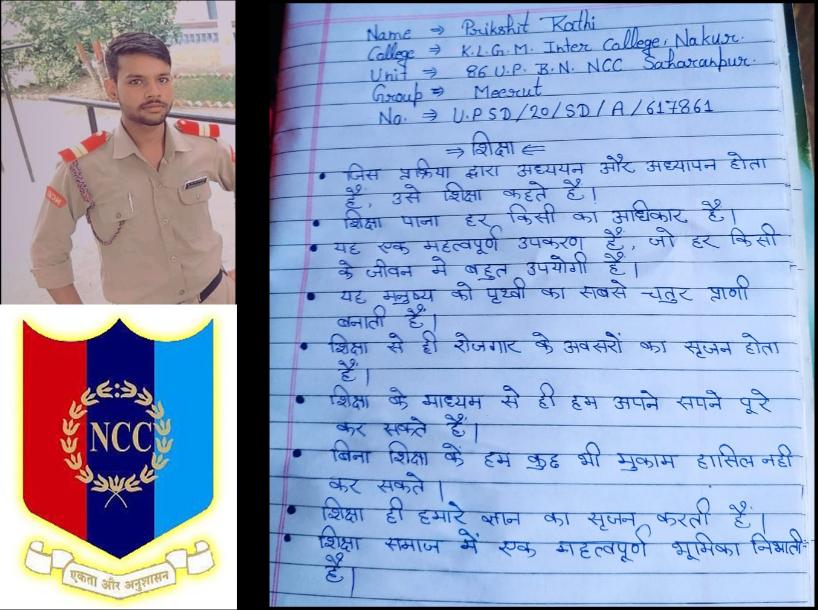 Name ⇒ Prikshit Rathi
College ⇒ K.L.G.M. Inter College, Nakur.
Unit ⇒ 86 U.P. B.N. NCC Saharanpur.
Group ⇒ Meerut
No. ⇒ U.P SD/20/SD/A/617861
⇒ शिक्षा ⇐
• जिस प्रक्रिया द्वारा अध्ययन और अध्यापन होता
है, उसे शिक्षा कहते है।
• शिक्षा पाना हर किसी का अधिकार है।
• यह एक महत्वपूर्ण उपकरण है, जो हर किसी
के जीवन मे बहुत उपयोगी है।
• यह मनुष्य को पृथ्वी का सबसे चतुर प्राणी
बनाती है।
• शिक्षा से ही रोजगार के अवसरों का सृजन होता
है।
• शिक्षा के माध्यम से ही हम अपने सपने पूरे
कर सकते हैं।
• बिना शिक्षा के हम कुछ भी मुकाम हासिल नही
कर सकते।
• शिक्षा ही हमारे ज्ञान का सृजन करती है।
• शिक्षा समाज में एक महत्वपूर्ण भूमिका निभाती
है।
NCC
एकता और अनुशासन